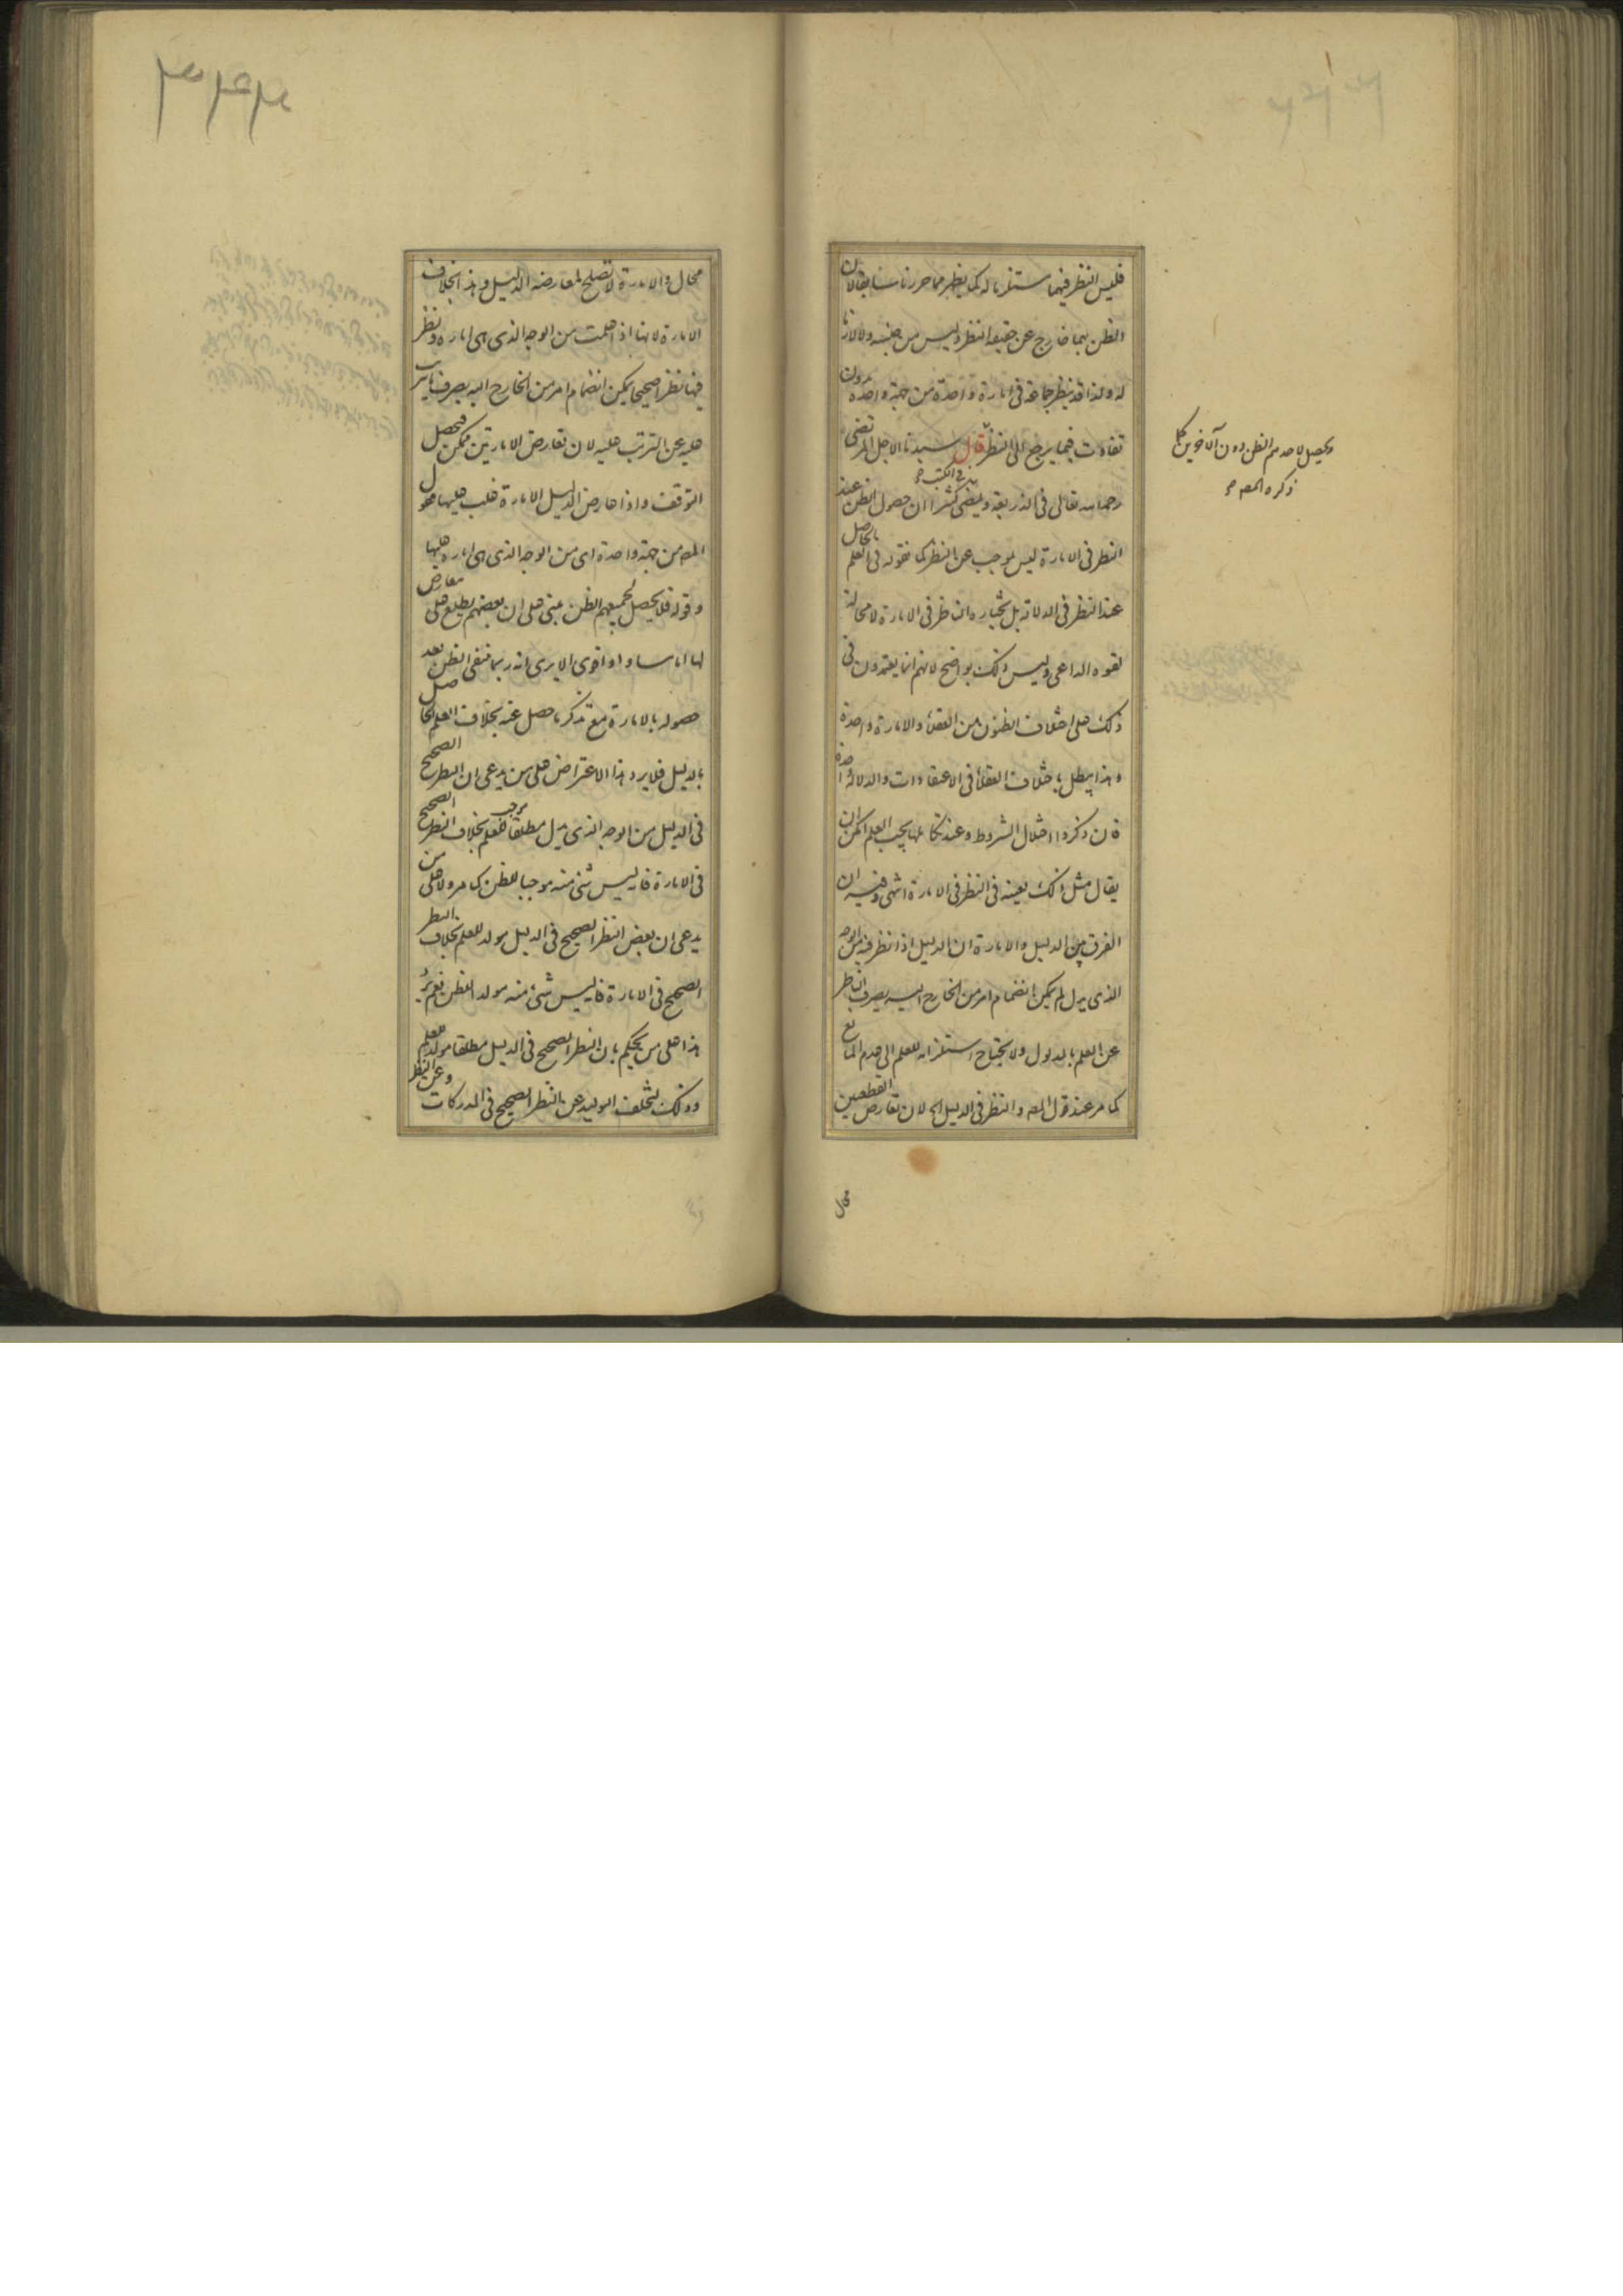 فليس النظر فيهما مستلزما له كما يظهر مما حررنا سابقا لان
الظن بهما خارج عن حقيقة النظر وليس من جنسه ولا لازما
له ولذا قد ينظر جماعة في امارة واحدة من جهة واحدة دون
تفاوت فيما يرجع الى النظر قال سيدنا الاجل المرتضى
رحمه الله تعالى في الذريعة ويمضى كثيرا في الكتب ان حصول الظن عند
النظر في الامارة ليس بموجب عن النظر كما نقوله في العلم الحاصل
عند النظر في الدلالة بل يختاره الناظر في الامارة لا محالة
لقوة الداعي وليس ذلك بواضح لانهم انما يعتمدون في
ذلك على اختلاف الظنون من العقلاء والامارة واحدة
وهذا يبطل باختلاف العقلاء في الاعتقادات والدلالة واحدة
فان ذكروا اختلال الشروط وعند تكاملها يجب العلم امكن ان
يقال مثل ذلك بعينه في النظر في الامارة انتهى وفيه ان
الفرق بين الدليل والامارة ان الدليل اذا نظر فيه من الوجه
الذي يدل لم يمكن انضمام امر من الخارج اليه يصرف الناظر
عن العلم بالمدلول ولا يحتاج استلزامه للعلم الى عدم المانع
كما مر عند قول المصـ والنظر في الدليل الخ لان تعارض القطعيين
محال
ويحصل لاحدهم الظن دون الآخرين كما
ذكره المصـ
محال والامارة لا تصلح لمعارضة الدليل وهذا بخلاف
الامارة لانها اذا علمت من الوجه الذي هي امارة ونظر
فيها نظرا صحيحا يمكن انضمام امر من الخارج اليه يصرف ما يترتب
عليه عن الترتب عليه لان تعارض الامارتين ممكن فيحصل
التوقف واذا عارض الدليل الامارة غلب عليها فقول
المصـ من جهة واحدة اى من الوجه الذي هي امارة عليها
وقوله فلا يحصل لجميعهم الظن مبني على ان بعضهم يطلع على معارض
لها اما مساو او اقوى الا يرى انه ربما ينتفى الظن بعد
حصوله بالامارة مع تذكر ما حصل عنه بخلاف العلم الحاصل
بالدليل فلا يرد هذا الاعتراض على من يدعى ان النظر الصحيح
في الدليل من الوجه الذي يدل مطلقا موجب للعلم بخلاف النظر الصحيح
في الامارة فانه ليس شئ منه موجبا للظن كما مر ولا على من
يدعى ان بعض النظر الصحيح في الدليل مولد للعلم بخلاف النظر
الصحيح في الامارة فانه ليس شئ منه مولد الظن نعم يرد
هذا على من يحكم بان النظر الصحيح في الدليل مطلقا مولد للعلم
وذلك لتخلف التوليد عن النظر الصحيح في المدركات وعن النظر